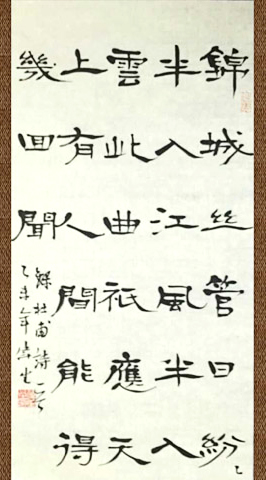 錦城丝管日紛〻
半入江風半入
雲此曲祇應天
上有人間能得
幾回聞
錄杜甫詩一首
乙未年